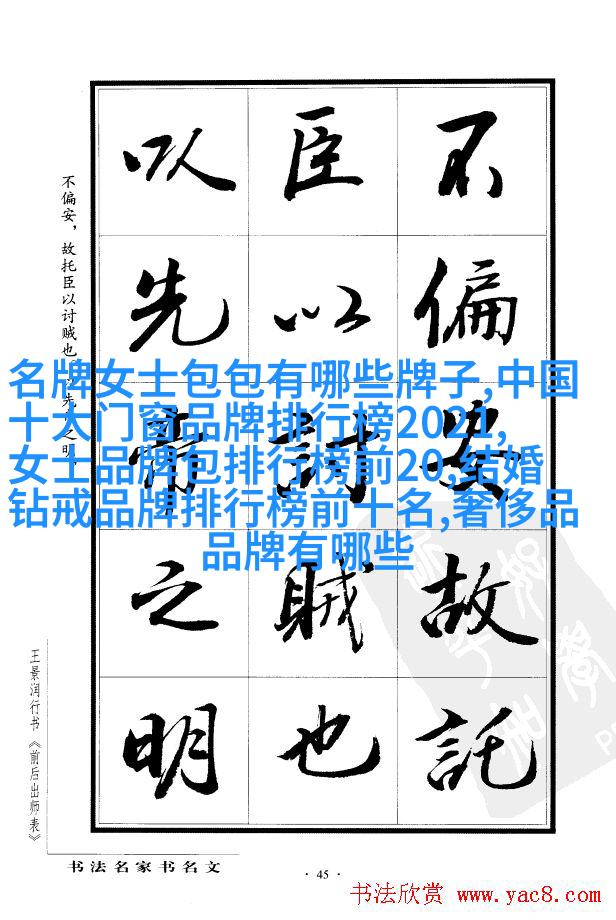 不偏安故託
臣以討賊也
以先帝之明
不偏安，故托臣以讨贼也先之明
名牌女士包包有哪些牌子,中国
十大门窗品牌排行榜2021,
女士品牌包排行榜前20,结婚
钻戒品牌排行榜前十名,奢侈品
品牌有哪些
王景润行书《前后出师表》
书法名家书名文
·45·
书法欣赏 www.yac8.com